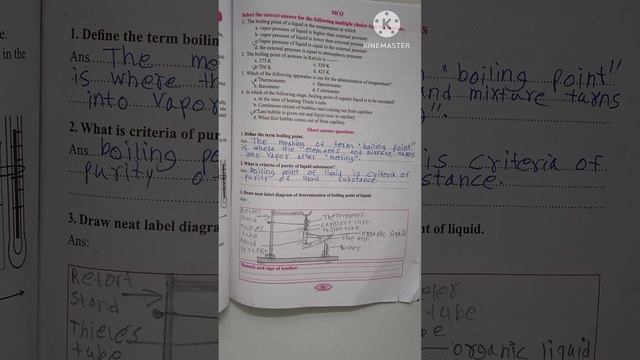 MCQ
Select the correct answer for the following multiple choice
1. The boiling point of a liquid is the temperature at which
a. vapor pressure of liquid is higher than external pressure
b. vapor pressure of liquid is lower than external pressure
c. vapor pressure of liquid is equal to the external pressure
d. the external pressure is equal to atmospheric pressure
2. The boiling point of acetone in Kelvin is
a. 273 K
c. 329 K
b. 356 K
d. 423 K
3. Which of the following apparatus is use for the determination of temperature?
a. Thermometer
c. Speedometer
b. Barometer
d. Colorimeter
4. In which of the following stage, boiling point of organic liquid is to be recorded?
a. At the time of heating Thiele's tube
b. Continuous stream of bubbles start coming out from capillary
c. Last bubble is given out and liquid raise in capillary
d. When first bubble comes out of from capillary
Short answer questions
1. Define the term boiling point.
Ans The meaning of term "boiling point"
is where the elements and mixture turns
into vapor after "melting".
2. What is criteria of purity of liquid substances?
Ans Boiling point of liquid is criteria of
purity of liquid substance.
3. Draw neat label diagram of determination of boiling point of liquid.
Ans:
Retort
stand
Thieles
tube
liquid
paraffin
capillary tube
fusion tube
organic liquid
Remark and sign of teacher:
51
KINEMASTER
e.
in the
1. Define the term boilin
Ans The me
is where th
into vapor
2. What is criteria of pur
Ans boiling po
purity o
3. Draw neat label diagra
Ans:
Retort
stand
Thieles
tube
s
"boiling point"
nd mixture turns
".
is criteria of
stance.
nt of liquid.
tube
organic liquid